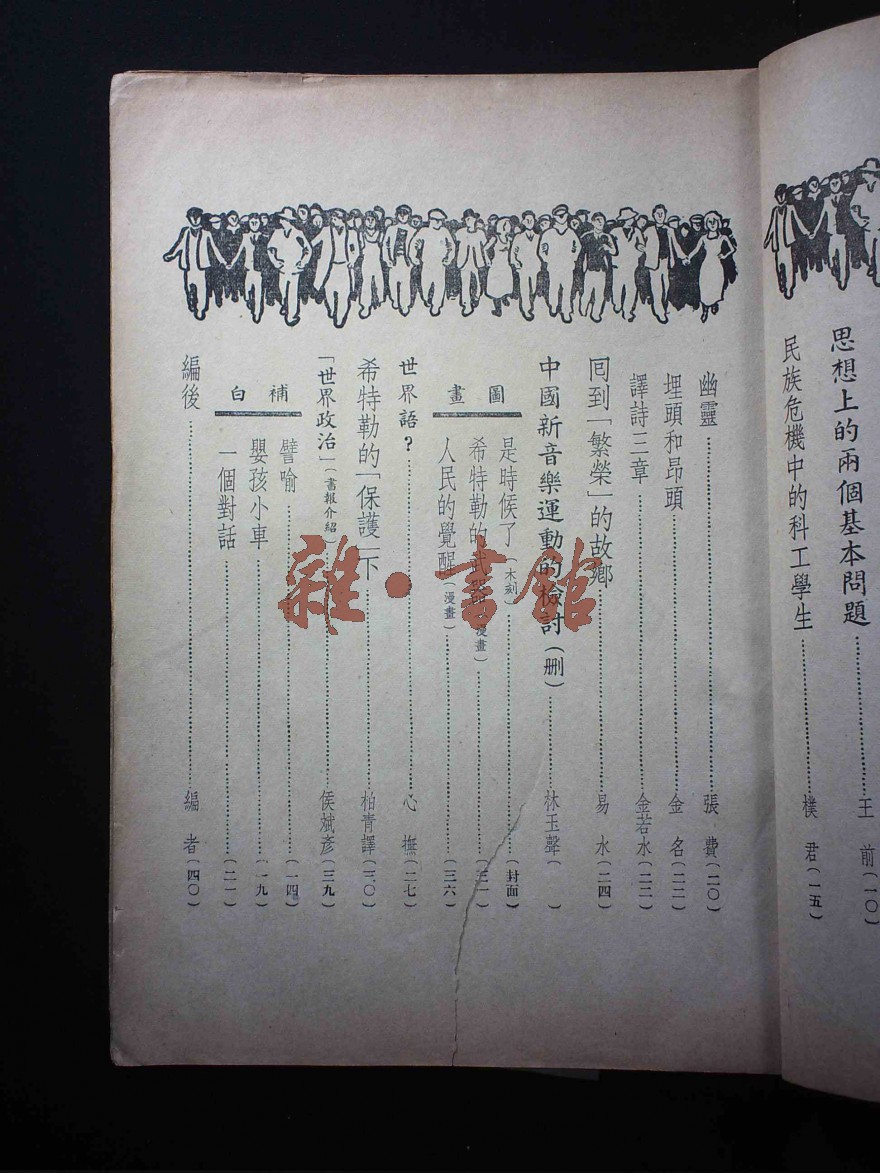 思想上的兩個基本問題……王前(一〇)
民族危機中的科工學生……樸君(一五)
幽靈……張費(二〇)
埋頭和昂頭……金名(二二)
譯詩三章……金若水(二二)
囘到「繁榮」的故鄉……易水(二四)
中國新音樂運動的檢討(删)……林玉聲( )
圖畫
是時候了(木刻)……(封面)
希特勒的武器(漫畫)……(三一)
人民的覺醒(漫畫)……(三六)
世界語?……心撫(二七)
希特勒的「保護」下……柏青譯(三〇)
「世界政治」(書報介紹)……侯斌彥(三九)
補白
譬喻……(一四)
嬰孩小車……(一九)
一個對話……(二一)
編後……編者(四〇)
雜·書館